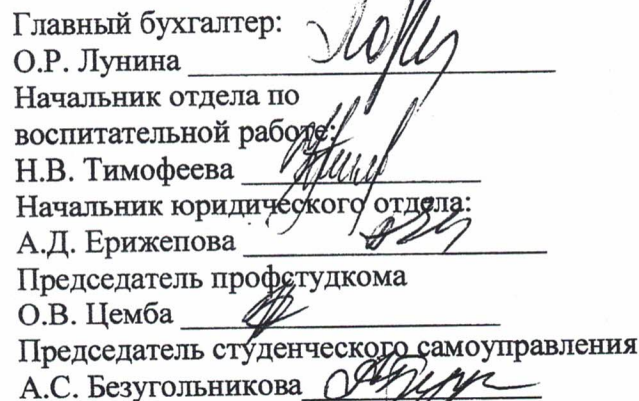 Главный бухгалтер:
О.Р. Лунина
Начальник отдела по
воспитательной работе:
Н.В. Тимофеева
Начальник юридического отдела:
А.Д. Ерижепова
Председатель профстудкома
О.В. Цемба
Председатель студенческого самоуправления
А.С. Безугольникова